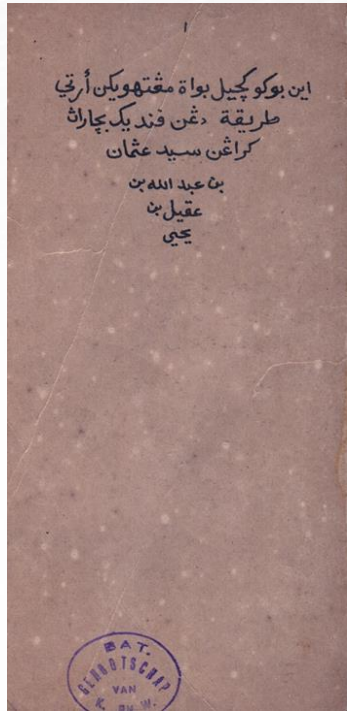 ١
اين بوكو كچيل بواة مڠتهويكن أرتي
طريقة دڠن فنديك بچاراڽ
كراڠن سيد عثمان
بن عبد الله بن
عقيل بن
يحيى
BAT.
GENOOTSCHAP
VAN
K. en W.